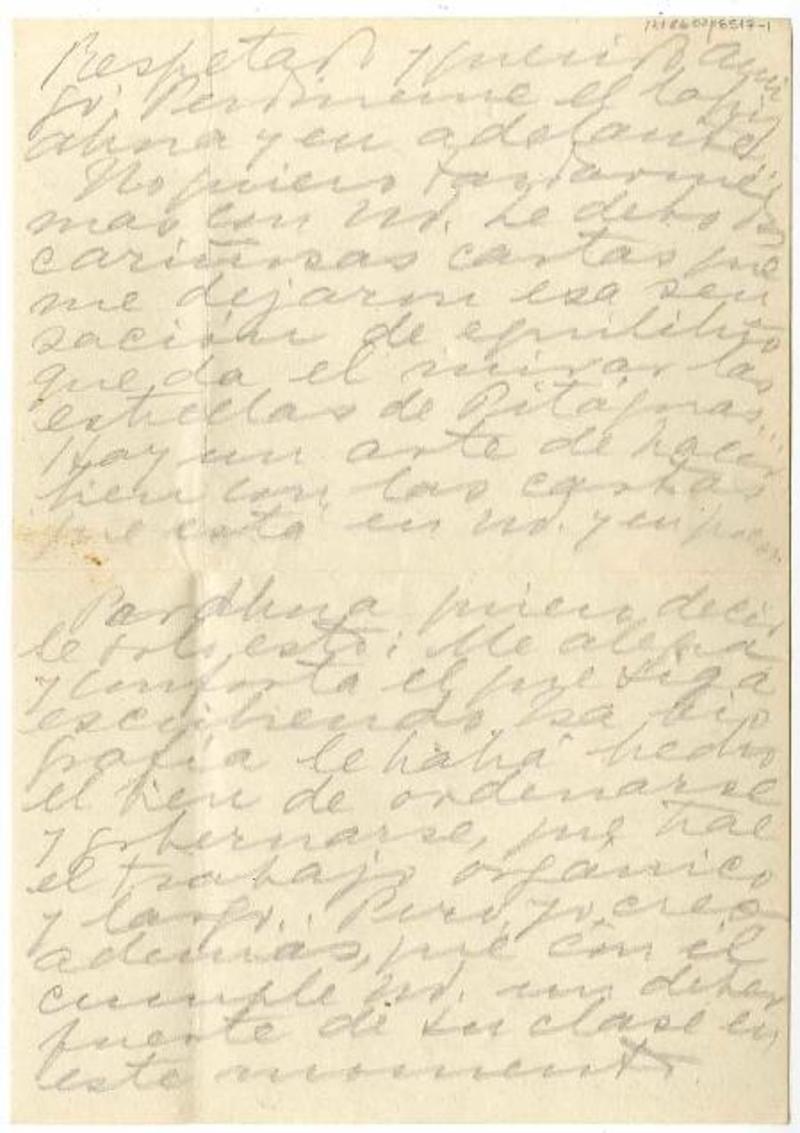 Respetado y querido ami
go: Perdóneme el lápiz
ahora y en adelante.
No quiero tardarme
mas con Ud. Le debo dos
cariñosas cartas que
me dejaron esa sen
sación de equilibrio
que da el mirar las
estrellas de Pitágoras.
Hay un arte de hacer
bien con las cartas
que está en Ud. y en pocos.
Por ahora quiero decir
le solo esto: Me alegra
y conforta el que siga
escribiendo. Esa bio
grafía le habrá hecho
el bien de ordenarse
y gobernarse, que trae
el trabajo orgánico
y largo. Pero yo creo
además, que con él
cumple Ud. un deber
fuerte de su clase en
este momento.